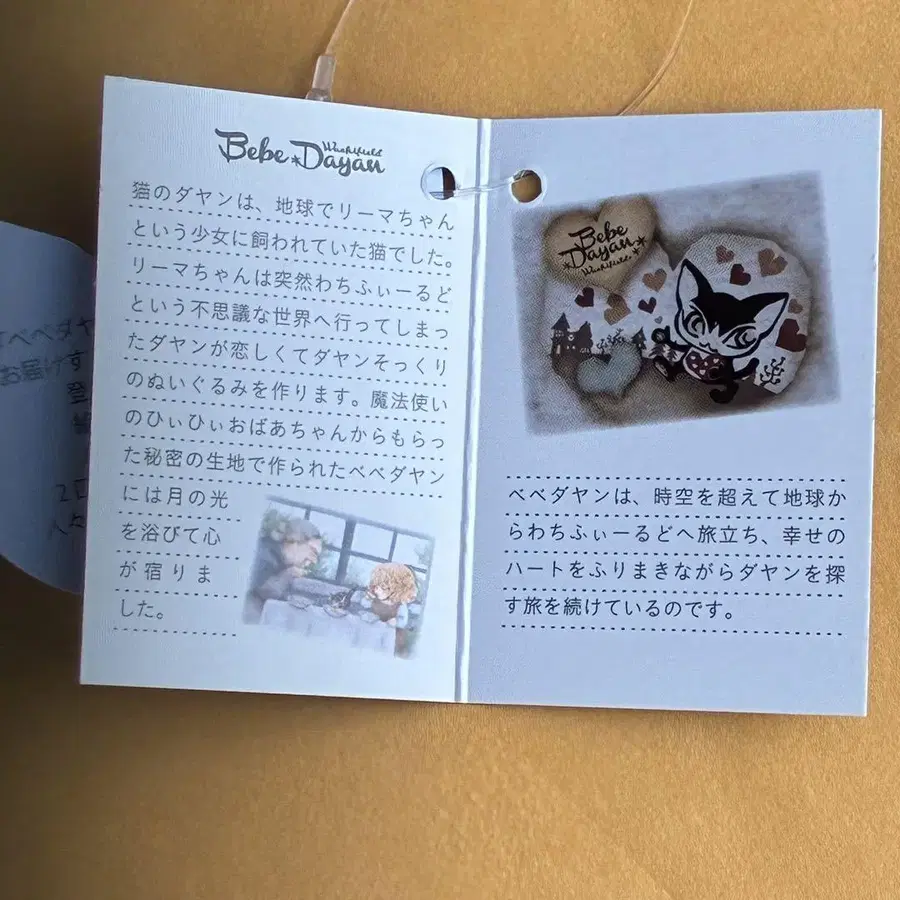 Bebe Dayan
Wachifield
猫のダヤンは、地球でリーマちゃん
という少女に飼われていた猫でした。
リーマちゃんは突然わちふぃーるど
という不思議な世界へ行ってしまっ
たダヤンが恋しくてダヤンそっくり
のぬいぐるみを作ります。魔法使い
のひぃひぃおばあちゃんからもらっ
た秘密の生地で作られたベベダヤン
には月の光
を浴びて心
が宿りま
した。
Bebe
Dayan
Wachifield
ベベダヤンは、時空を超えて地球か
らわちふぃーるどへ旅立ち、幸せの
ハートをふりまきながらダヤンを探
す旅を続けているのです。
べべダヤ
お届けす